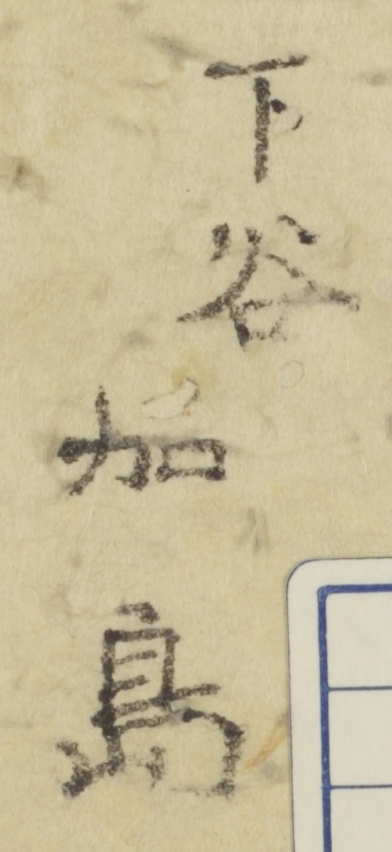 下谷
加島